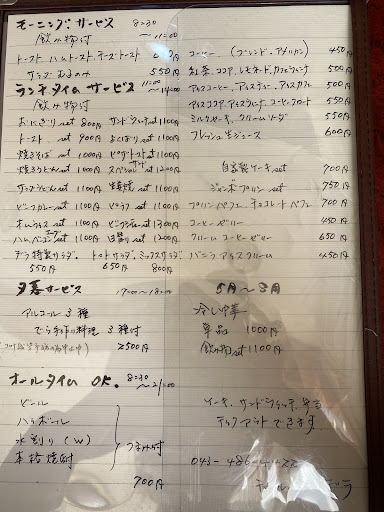 モーニングサービス 8:30〜11:00
飲み物付
トースト ハムトースト チーズトースト
サラダ むすのみ 550円
ランチタイムサービス 11:00〜14:00
飲み物付
おにぎり set 800円 サンドウィッチ set 1100円
トースト set 900円 set 1100円
焼きそば set 1000円 ピザトースト set 1100円
焼きうどん set 1100円 スペシャルサンド set 1200円
set 1100円 生姜焼 set 1100円
ビーフカレー set 1100円 ピラフ set 1100円
オムライス set 1100円 ビーフシチュー set 1300円
ハムベーコンエッグ set 1100円 日替り set 1200円
デラ特製サラダ トマトサラダ ミックスサラダ
550円 650円 800円
コーヒー (ブレンド・アメリカン) 450円
紅茶、ココア、レモネード、カフェウィンナ 500円
アイスコーヒー、アイスティー、アイスカフェ 500円
アイスココア、アイスウィンナ、コーヒーフロート 550円
ミルクセーキ、クリームソーダ 550円
フレッシュ生ジュース 600円
自家製ケーキ set 900円
ジャンボプリン set 950円
プリンパフェ、チョコレートパフェ 900円
コーヒーゼリー 450円
クリームコーヒーゼリー 650円
バニラアイスクリーム 450円
夕暮サービス 17:00〜18:00
アルコール 3種
でら手作り料理 3種付
2500円
5月〜8月
冷し中華
単品 1000円
飲み物 set 1100円
オールタイム OK. 8:30〜21:00
ビール
ハイボール
水割り (W)
本格焼酎
つまみ付
900円
ケーキ、サンドウィッチ、弁当
テイクアウトできます